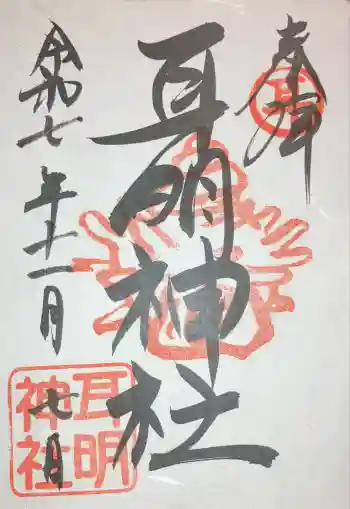 奉拝
耳明神社
令和七年十一月
七日
耳明
神社